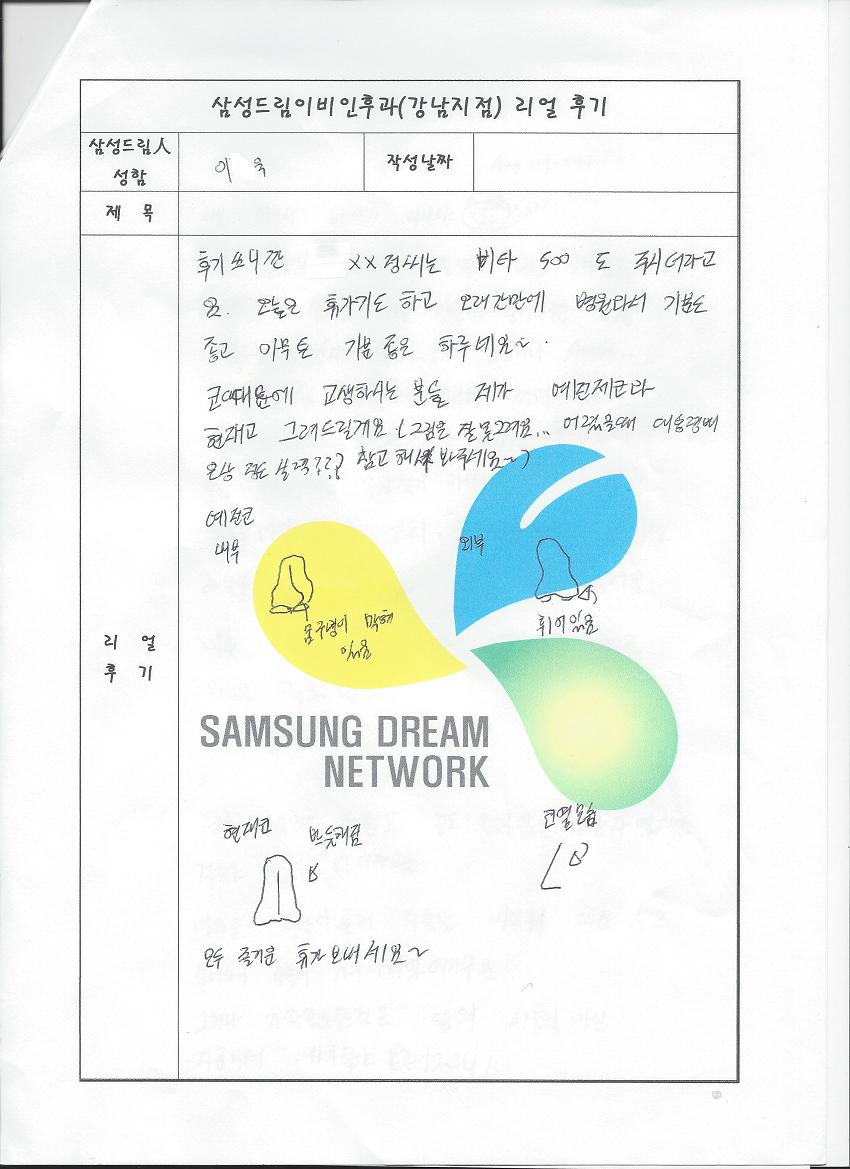 삼성드림이비인후과(강남지점) 리얼 후기
삼성드림人 성함
이 욱
작성날짜
제 목
리 얼 후 기
후기쓰니깐 XX정씨는 비타 500 도 주시더라고
요. 오늘은 휴가기도 하고 오래간만에 병원와서 기분도
좋고 아무튼 기분 좋은 하루네요~.
코때문에 고생하시는 분들 제가 예전제코와
현재코 그려드릴게요 (그림은 잘못그려요... 어렸을때
참고 해서 봐주세요~)
예전코
내부
외부
콧구녕이 막혀
있음
휘어있음
SAMSUNG DREAM
NETWORK
현재코
반듯해짐
코옆모습
모두 즐거운 휴가 보내세요~